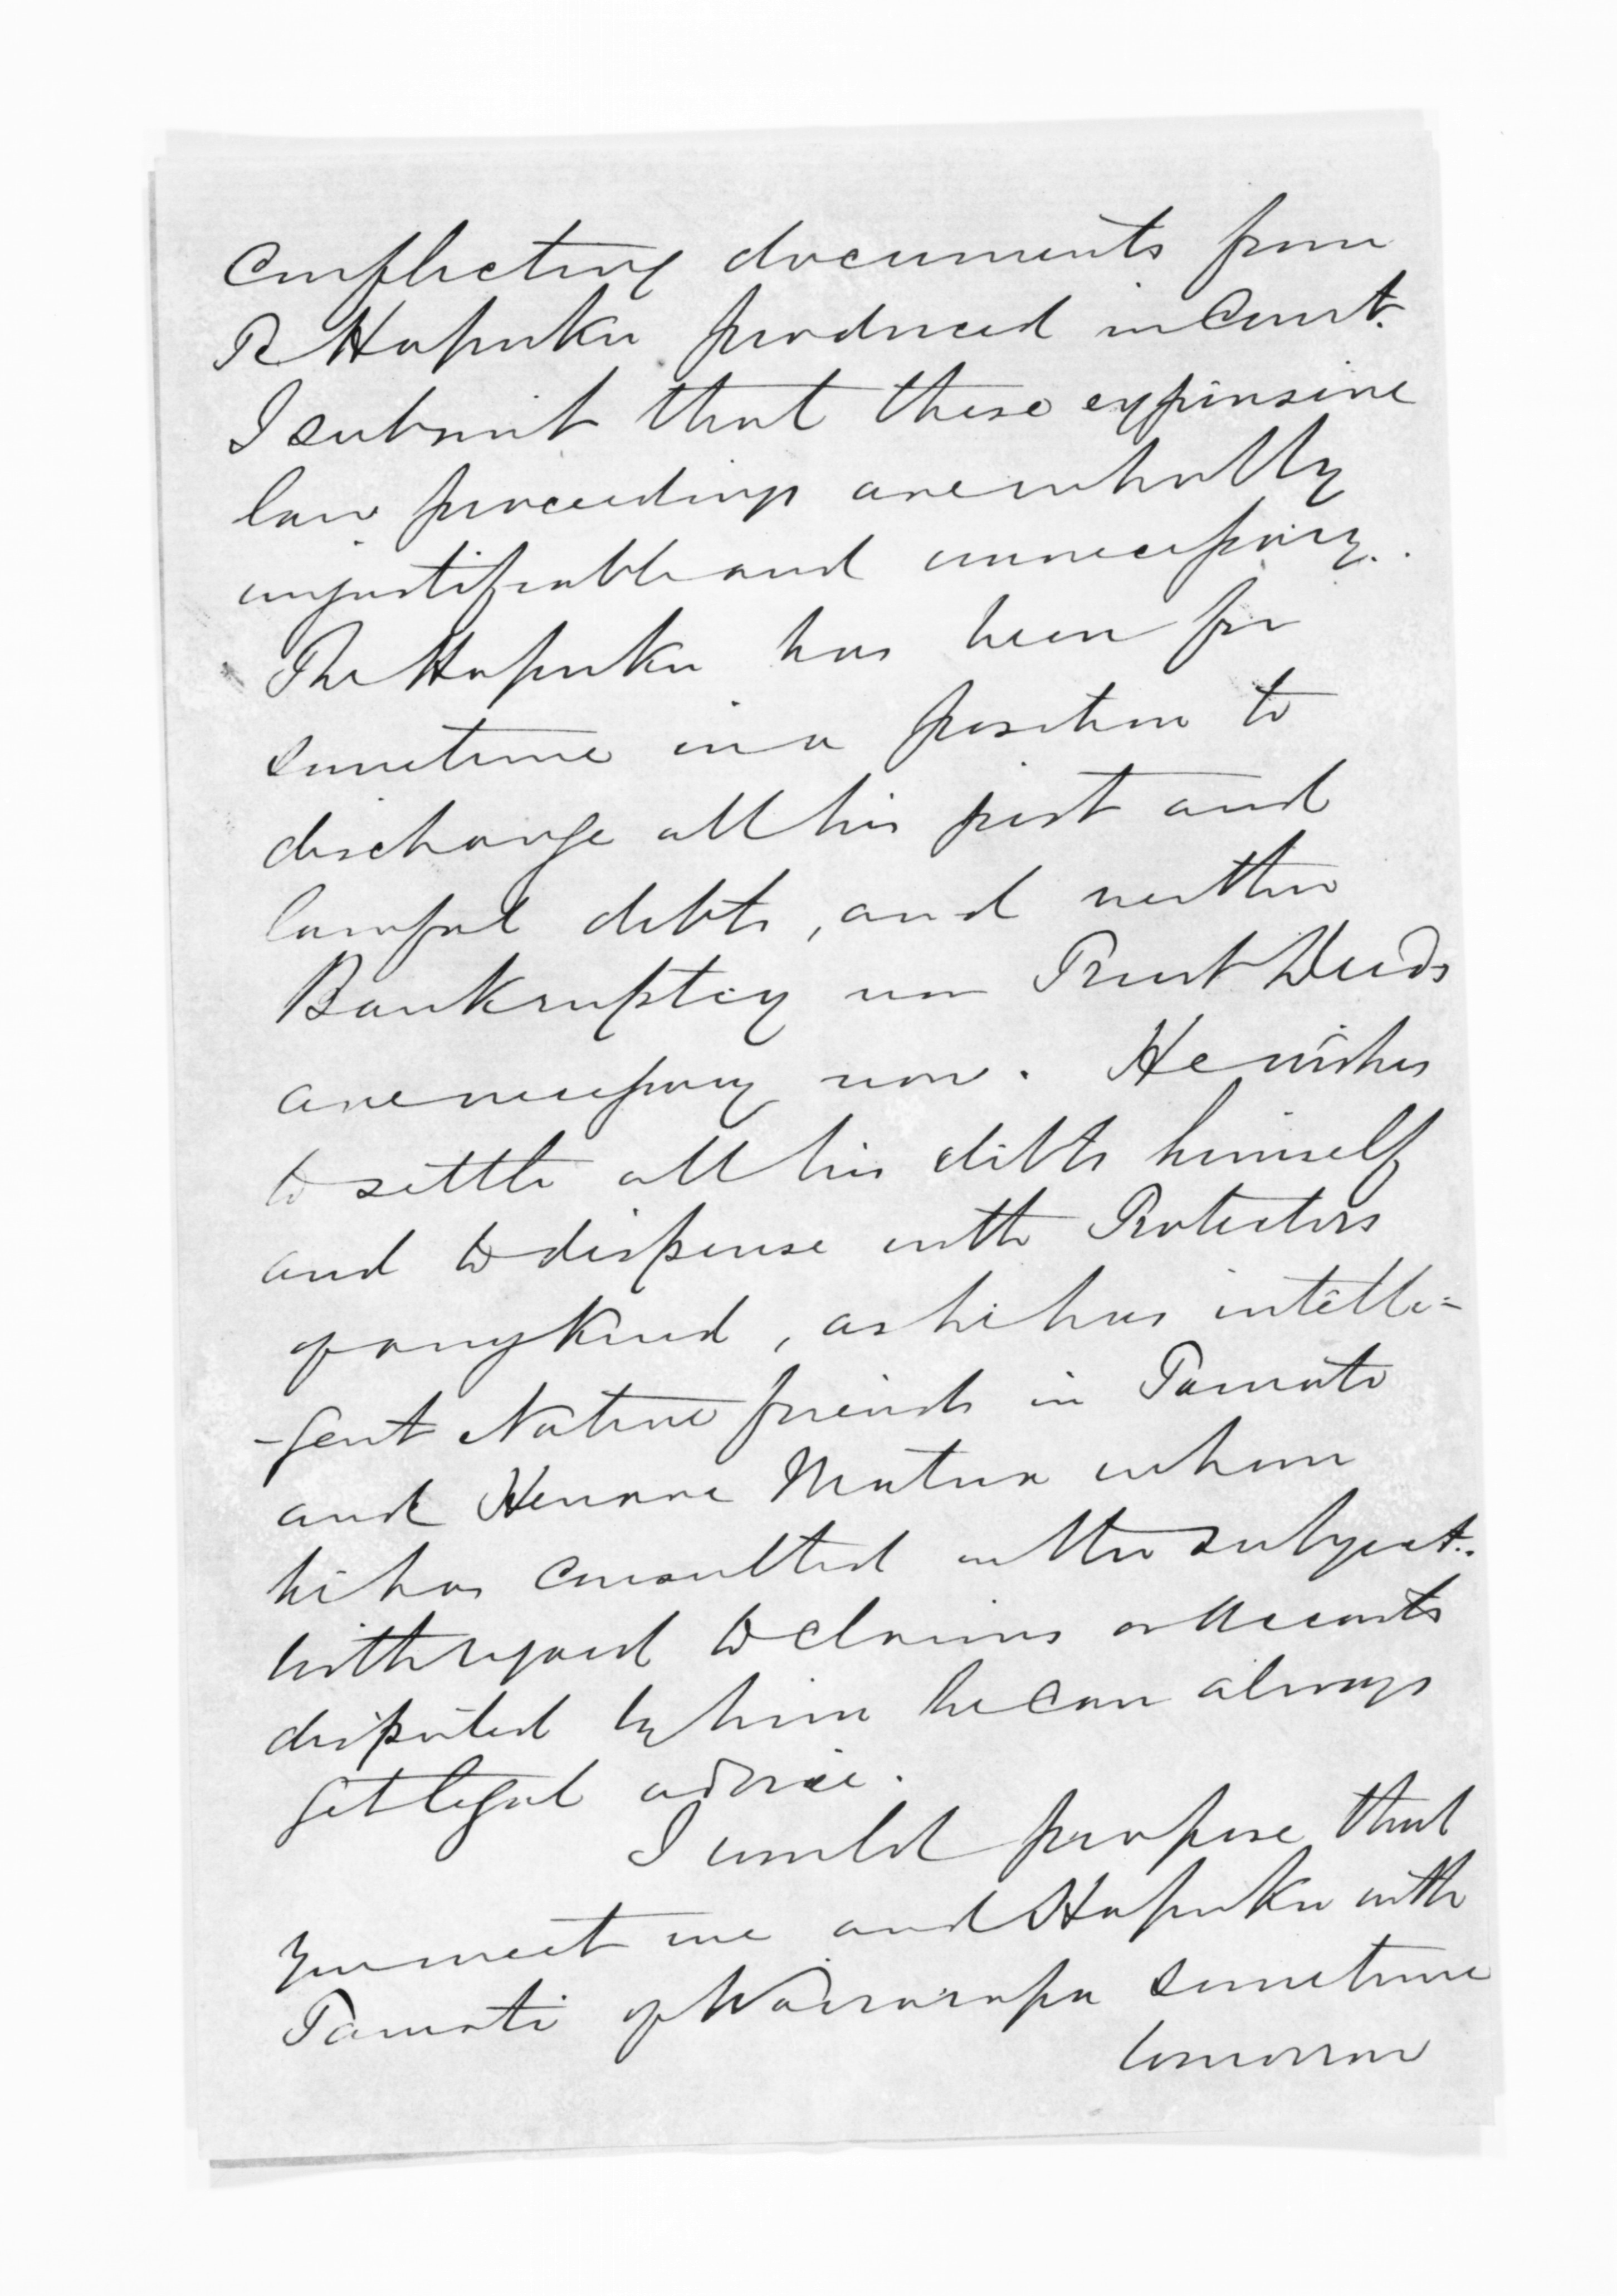 conflicting documents from
Te Hapuku produced in Court.
I submit that these expensive
law proceedings are wholly
unjustifiable and unnecessary.
Te Hapuku has been for
sometime in a position to
discharge all his just and
lawful debts, and neither
Bankruptcy nor Trust Deeds
are necessary now. He wishes
to settle all his debts himself
and to dispense with Protectors
of any kind, as he has intelli=
-gent Native friends in Tamati
and Henare Matua whom
he has consulted on the subject.
With regard to claims or accounts
disputed by him he can always
get legal advice.
I would propose that
you meet me and Hapuku with
Tamati of Wairarapa sometime
tomorrow